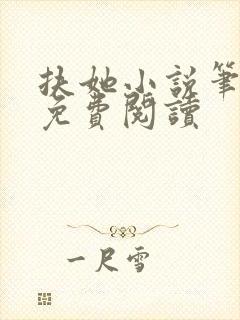 扶她小説筆
免費閱讀
一尺雪